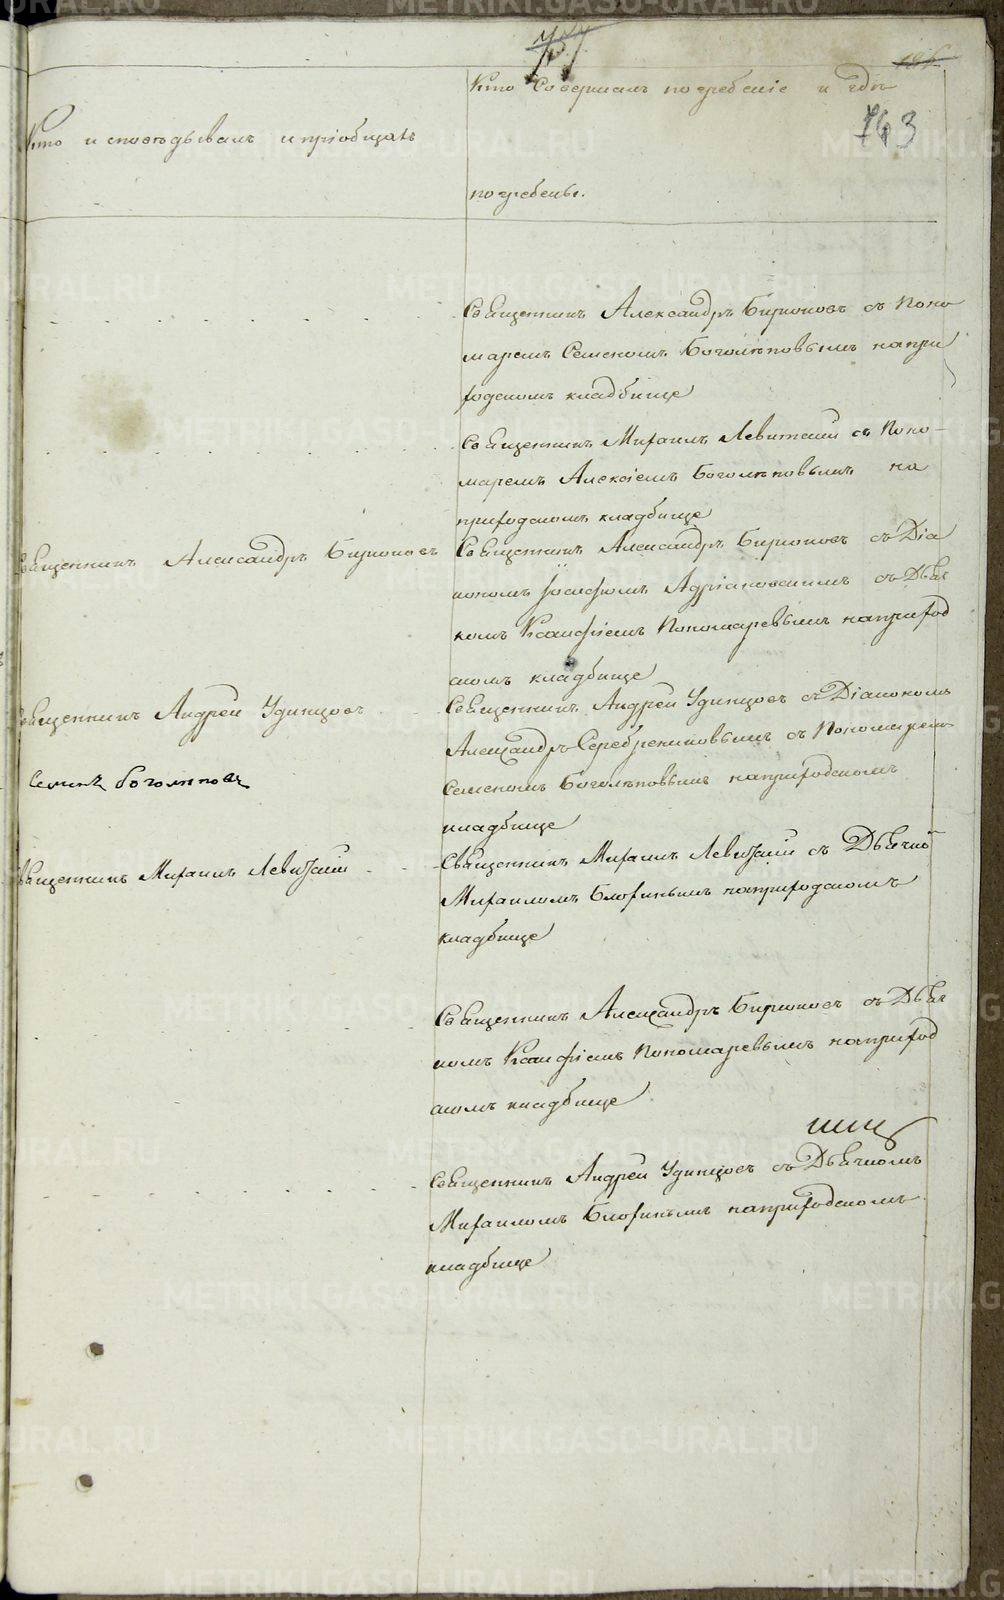 763
Кто Совершалъ погребеніе и гдѣ
Кто исповѣдывалъ и пріобщалъ
погребены.
Священникъ Александръ Бирюковъ съ Поно
маремъ Семеномъ Боголѣповымъ напри
ходскомъ кладбище
Священникъ Михаилъ Левитскій съ Поно-
маремъ Алексіемъ Боголѣповымъ на
приходскомъ кладбище
Священникъ Александръ Бирюковъ
Священникъ Александръ Бирюковъ съ Діа
кономъ Іосифомъ Адріановскимъ съ Дьяч
комъ Ксанфіемъ Пономаревымъ наприход
скомъ кладбище
Священникъ Андрей Удинцовъ
Священникъ Андрей Удинцовъ съ Діакономъ
Александръ Серебрениковымъ съ Пономаремъ
Семенъ Боголѣповъ
Семеномъ Боголѣповымъ наприходскомъ
кладбище
Священникъ Михаилъ Левитскій
Священникъ Михаилъ Левитскій съ Дьячко
Михаиломъ Блохинымъ наприходскомъ
кладбище
Священникъ Александръ Бирюковъ съ Дьяч
комъ Ксанфіемъ Пономаревымъ наприход
скомъ кладбище
Священникъ Андрей Удинцовъ съ Дьячкомъ
Михаиломъ Блохинымъ наприходскомъ
кладбище
METRIKI.GASO-URAL.RU